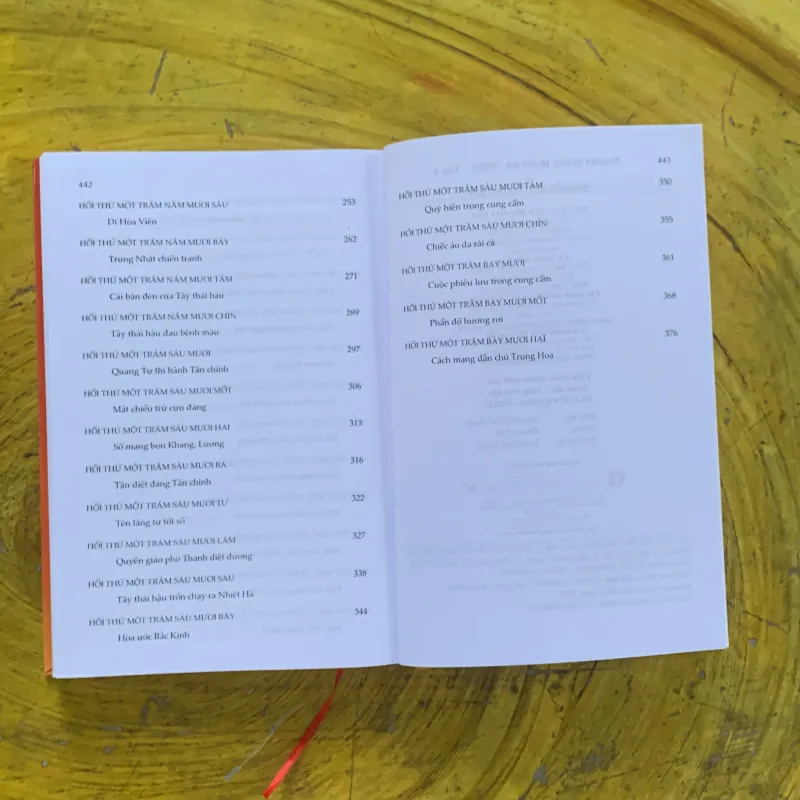 442
HỒI THỨ MỘT TRĂM NĂM MƯƠI SÁU 253
Di Hòa Viên
HỒI THỨ MỘT TRĂM NĂM MƯƠI BẢY 262
Trung Nhật chiến tranh
HỒI THỨ MỘT TRĂM NĂM MƯƠI TÁM 271
Cái bàn đèn của Tây thái hậu
HỒI THỨ MỘT TRĂM NĂM MƯƠI CHÍN 289
Tây thái hậu đau bệnh máu
HỒI THỨ MỘT TRĂM SÁU MƯƠI 297
Quang Tự thi hành Tân chính
HỒI THỨ MỘT TRĂM SÁU MƯƠI MỐT 306
Mật chiếu trừ cựu đảng
HỒI THỨ MỘT TRĂM SÁU MƯƠI HAI 313
Số mạng bọn Khang, Lương
HỒI THỨ MỘT TRĂM SÁU MƯƠI BA 316
Tận diệt đảng Tân chính
HỒI THỨ MỘT TRĂM SÁU MƯƠI TƯ 322
Tên lãng tử tốt số
HỒI THỨ MỘT TRĂM SÁU MƯƠI LĂM 327
Quyền giáo phò Thanh diệt dương
HỒI THỨ MỘT TRĂM SÁU MƯƠI SÁU 338
Tây thái hậu trốn chạy ra Nhiệt Hà
HỒI THỨ MỘT TRĂM SÁU MƯƠI BẢY 344
Hòa ước Bắc Kinh
443
HỒI THỨ MỘT TRĂM SÁU MƯƠI TÁM 350
Quỷ hiện trong cung cấm
HỒI THỨ MỘT TRĂM SÁU MƯƠI CHÍN 355
Chiếc áo da rái cá
HỒI THỨ MỘT TRĂM BẢY MƯƠI 361
Cuộc phiêu lưu trong cung cấm
HỒI THỨ MỘT TRĂM BẢY MƯƠI MỐT 368
Phấn đổ hương rơi
HỒI THỨ MỘT TRĂM BẢY MƯƠI HAI 376
Cách mạng dân chủ Trung Hoa